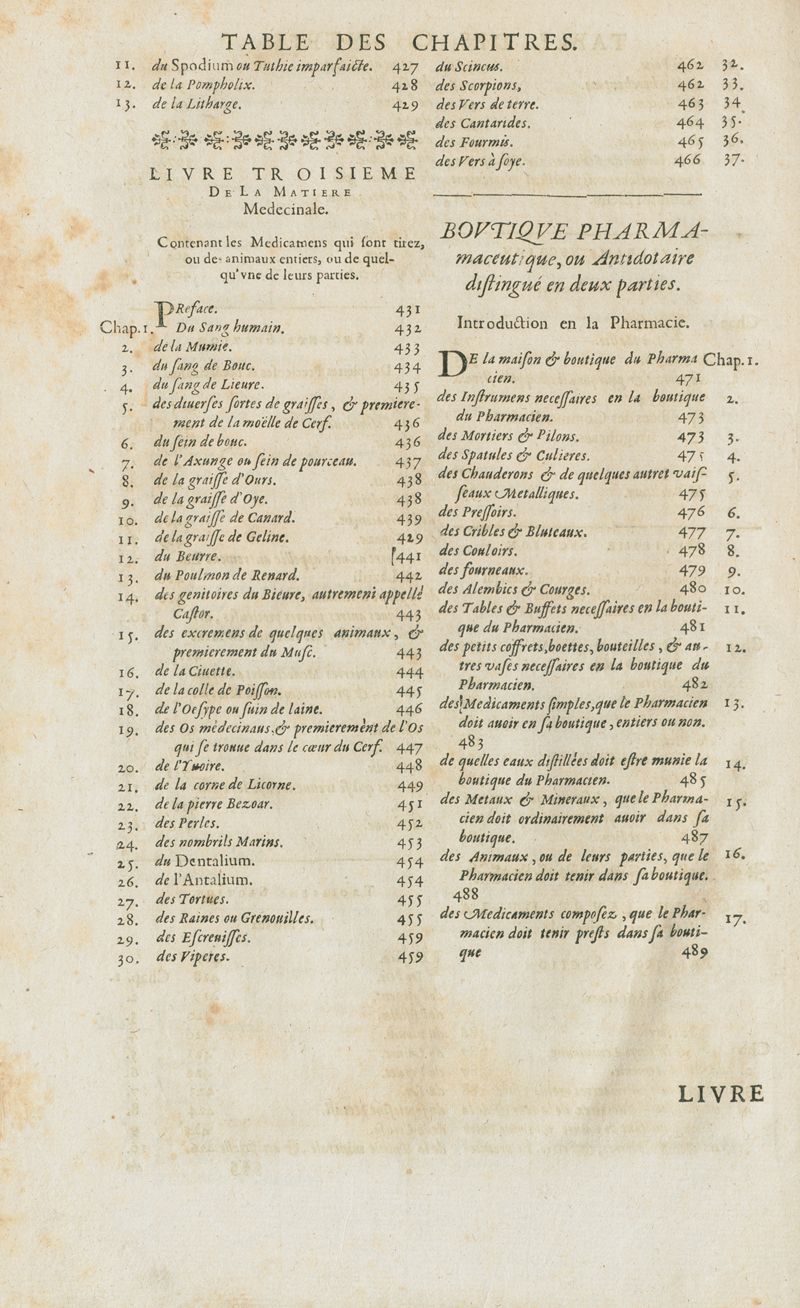 TABLE DES CHAPITRES.
11. du Spodium ou Tuthie imparfaicte. 427
12. de la Pompholix. 428
13. de la Litharge. 429
LIVRE TROISIEME
DE LA MATIERE
Medecinale.
Contenant les Medicamens qui sont tirez,
ou des animaux entiers, ou de quel-
qu'vne de leurs parties.
PReface. 431
Chap. 1. Du Sang humain. 432
2. de la Mumie. 433
3. du sang de Bouc. 434
4. du sang de Lieure. 435
5. des diuerses sortes de graisses, & premiere-
ment de la moëlle de Cerf. 436
6. du sein de bouc. 436
7. de l'Axunge ou sein de pourceau. 437
8. de la graisse d'Ours. 438
9. de la graisse d'Oye. 438
10. de la graisse de Canard. 439
11. de la graisse de Geline. 429
12. du Beurre. [441
13. du Poulmon de Renard. 442
14. des genitoires du Bieure, autrement appellé
Castor. 443
15. des excremens de quelques animaux, &
premierement du Musc. 443
16. de la Ciuette. 444
17. de la colle de Poisson. 445
18. de l'Oesype ou suin de laine. 446
19. des Os médecinaus, & premierement de l'Os
qui se trouue dans le cœur du Cerf. 447
20. de l'Yuoire. 448
21. de la corne de Licorne. 449
22. de la pierre Bezoar. 451
23. des Perles. 452
24. des nombrils Marins. 453
25. du Dentalium. 454
26. de l'Antalium. 454
27. des Tortues. 455
28. des Raines ou Grenouilles. 455
29. des Escreuisses. 459
30. des Viperes. 459
du Scincus. 462 32.
des Scorpions, 462 33.
des Vers de terre. 463 34
des Cantarides. 464 35.
des Fourmis. 465 36.
des Vers à soye. 466 37.
BOVTIQVE PHARMA-
maceutique, ou Antidotaire
distingué en deux parties.
Introduction en la Pharmacie.
DE la maison & boutique du Pharma Chap. 1.
cien. 471
des Instrumens necessaires en la boutique 2.
du Pharmacien. 473
des Mortiers & Pilons. 473 3.
des Spatules & Culieres. 475 4.
des Chauderons & de quelques autret vais- 5.
seaux Metalliques. 475
des Pressoirs. 476 6.
des Cribles & Bluteaux. 477 7.
des Couloirs. 478 8.
des fourneaux. 479 9.
des Alembics & Courges. 480 10.
des Tables & Buffets necessaires en la bouti- 11.
que du Pharmacien. 481
des petits coffrets, boettes, bouteilles, & au- 12.
tres vases necessaires en la boutique du
Pharmacien. 482
des Medicaments simples, que le Pharmacien 13.
doit auoir en sa boutique, entiers ou non.
483
de quelles eaux distillées doit estre munie la 14.
boutique du Pharmacien. 485
des Metaux & Mineraux, que le Pharma- 15.
cien doit ordinairement auoir dans sa
boutique. 487
des Animaux, ou de leurs parties, que le 16.
Pharmacien doit tenir dans sa boutique.
488
des Medicaments composez, que le Phar- 17.
macien doit tenir prests dans sa bouti-
que 489
LIVRE